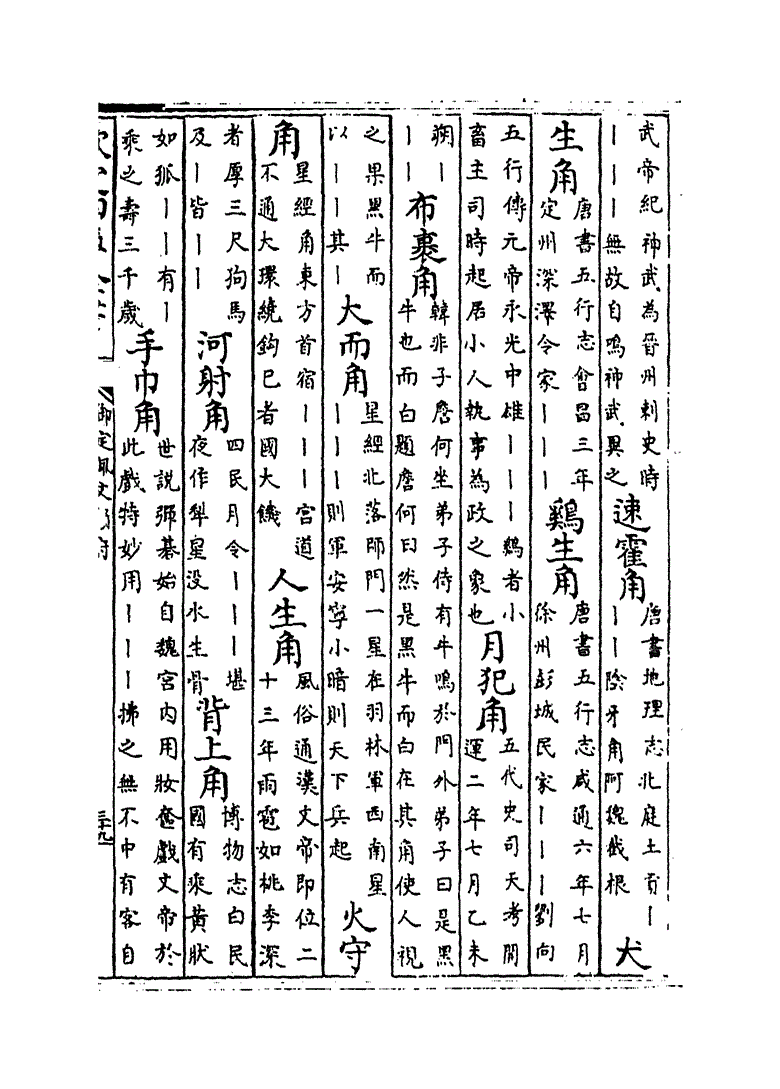 武帝紀神武為晉州刺史時丨丨丨無故自鳴神武異之 速霍角 唐書地理志北庭土貢丨丨丨陰牙角阿魏截根 犬
生角 唐書五行志會昌三年定州深澤令家丨丨丨 鷄生角 唐書五行志咸通六年七月徐州彭城民家丨丨丨劉向
五行傳元帝永光中雄丨丨丨鷄者小畜主司時起居小人執事為政之象也 月犯角 五代史司天考開運二年七月乙未
朔丨丨丨 布裹角 韓非子詹何坐弟子侍有牛鳴於門外弟子曰是黑牛也而白題詹何曰然是黑牛而白在其角使人視
之果黑牛而以丨丨其丨 大而角 星經北落師門一星在羽林軍西南星丨丨丨則軍安寧小暗則天下兵起 火守
角 星經角東方首宿丨丨丨宮道不通大環繞鈎巳者國大饑 人生角 風俗通漢文帝即位二十三年雨雹如桃李深
者厚三尺狗馬及丨皆丨丨 河射角 四民月令丨丨丨堪夜作犂星没水生骨 背上角 博物志白民國有乘黄狀
如狐丨丨有丨乘之壽三千歲 手巾角 世説彈棊始自魏宮内用妝奩戲文帝於此戲特妙用丨丨丨拂之無不中有客自
御定佩文韻府